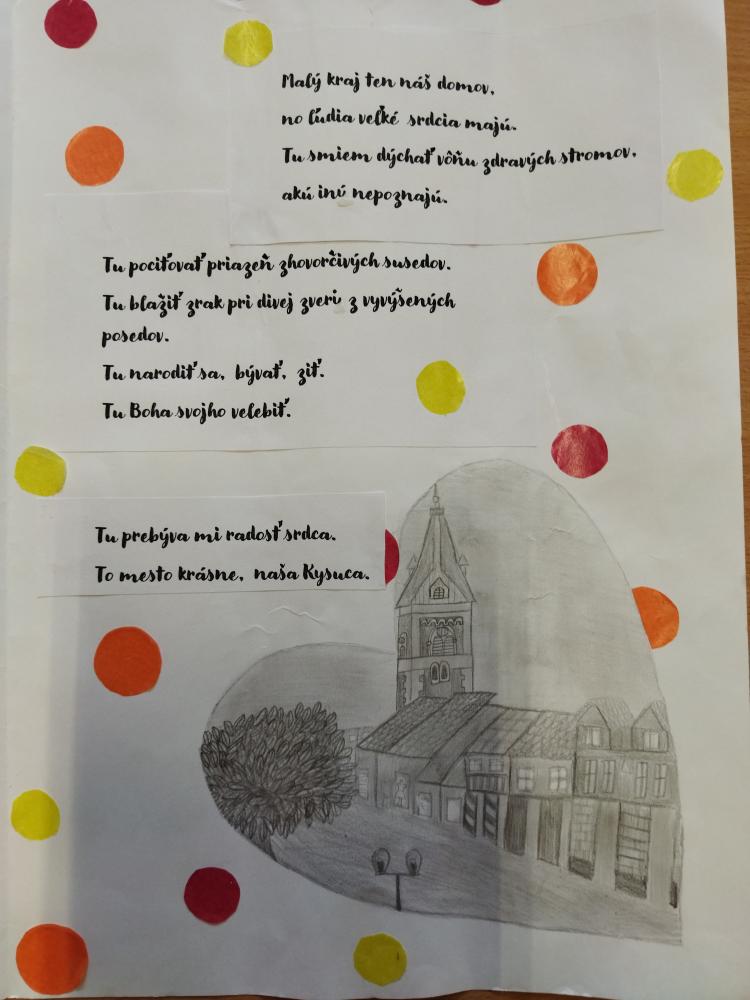 Malý kraj ten náš domov,
no ľudia veľké srdcia majú.
Tu smiem dýchať vôňu zdravých stromov,
akú inú nepoznajú.
Tu pociťovať priazeň zhovorčivých susedov.
Tu blažiť zrak pri divej zveri z vyvýšených
posedov.
Tu narodiť sa, bývať, ziť.
Tu Boha svojho velebiť.
Tu prebýva mi radosť srdca.
To mesto krásne, naša Kysuca.